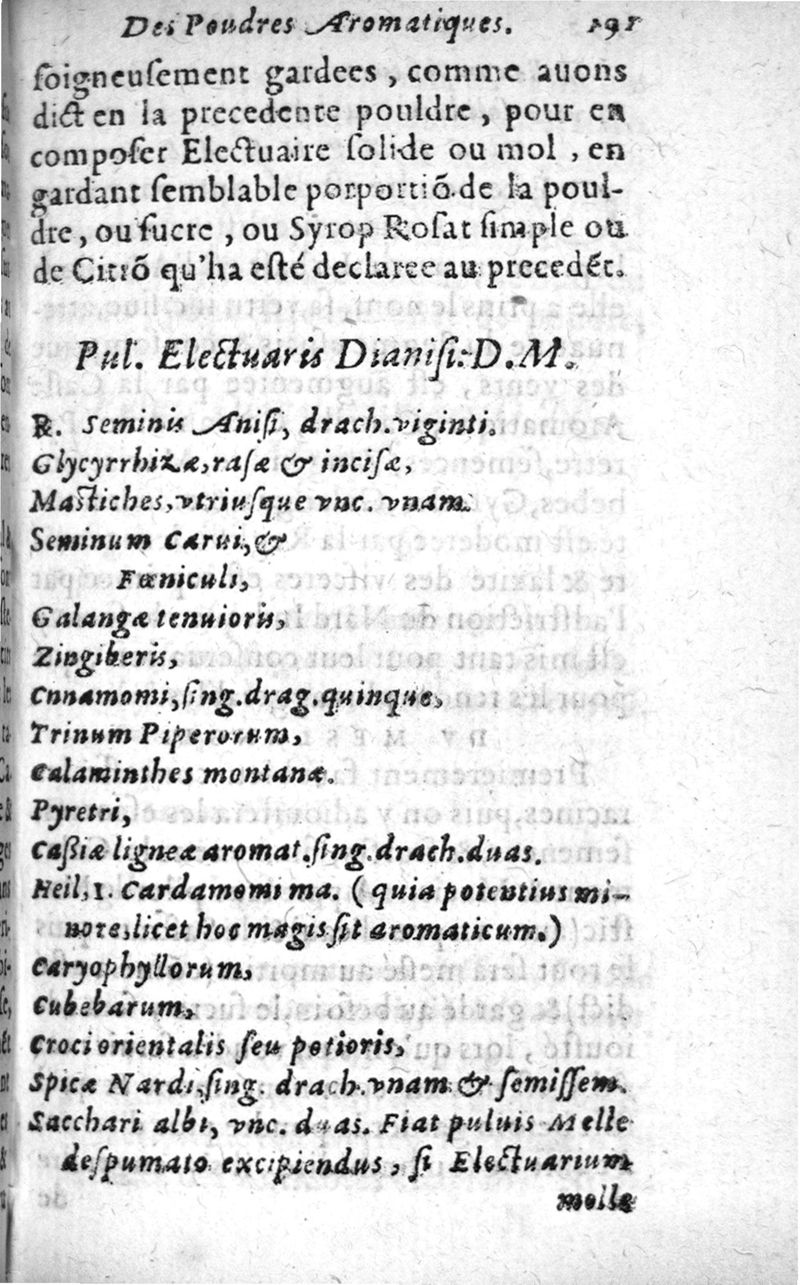 Des Poudres Aromatiques. 191
ſoigneuſement gardees, comme auons
dict en la precedente pouldre, pour en
compoſer Electuaire ſolide ou mol, en
gardant ſemblable porportiõ de la poul-
dre, ou ſucre, ou Syrop Roſat ſimple ou
de Citrõ qu'ha eſté declaree au precedẽt.
Pul. Electuaris Dianiſi. D. M.
R. Seminis Aniſi, drach. viginti.
Glycyrrhizæ, raſæ & inciſæ,
Maſtiches, vtriuſque vnc. vnam.
Seminum Carui, &
Fœniculi,
Galangæ tenuioris,
Zingiberis,
Cnnamomi, ſing. drag. quinque,
Trinum Piperorum,
Calaminthes montanæ.
Pyretri,
Caßiæ ligneæ aromat. ſing. drach. duas.
Heil, 1. Cardamomi ma. (quia potentius mi-
nore, licet hoc magis ſit aromaticum.)
Caryophyllorum,
Cubebarum,
Croci orientalis ſeu potioris,
Spicæ Nardi, ſing. drach. vnam & ſemiſſem.
Sacchari albi, vnc. duas. Fiat puluis Melle
deſpumato excipiendus, ſi Electuarium
molle